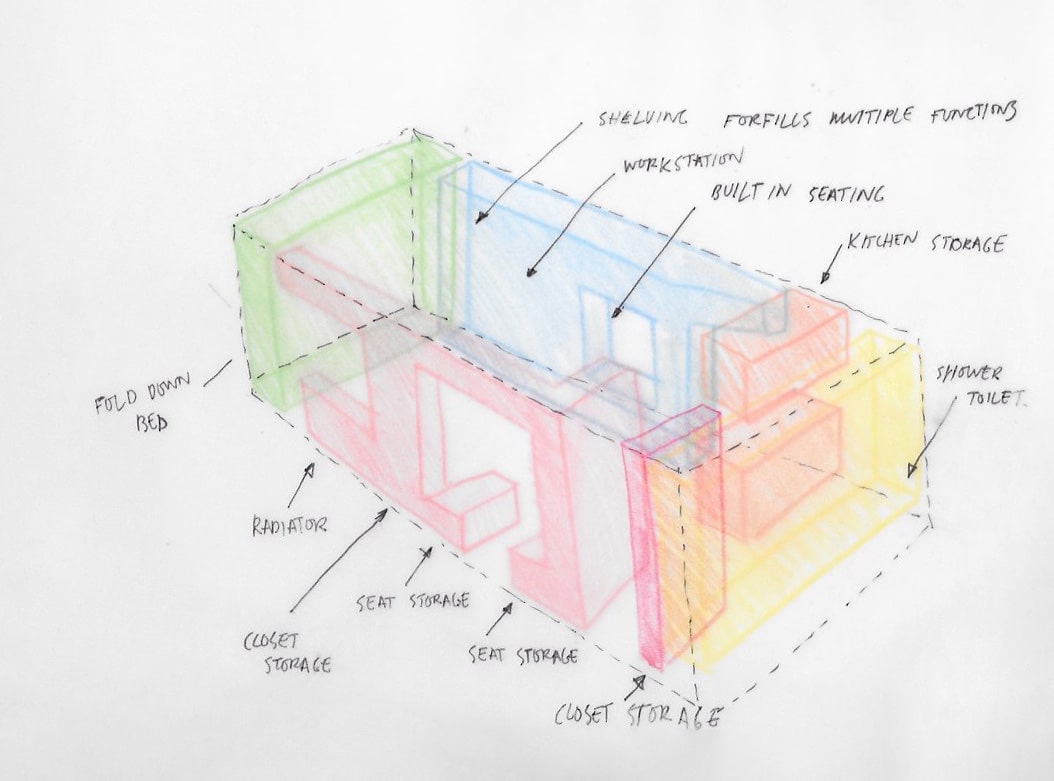 SHELVING FORFILLS MULTIPLE FUNCTIONS
WORKSTATION
BUILT IN SEATING
KITCHEN STORAGE
SHOWER
TOILET.
FOLD DOWN
BED
RADIATOR
SEAT STORAGE
CLOSET
STORAGE
SEAT STORAGE
CLOSET STORAGE